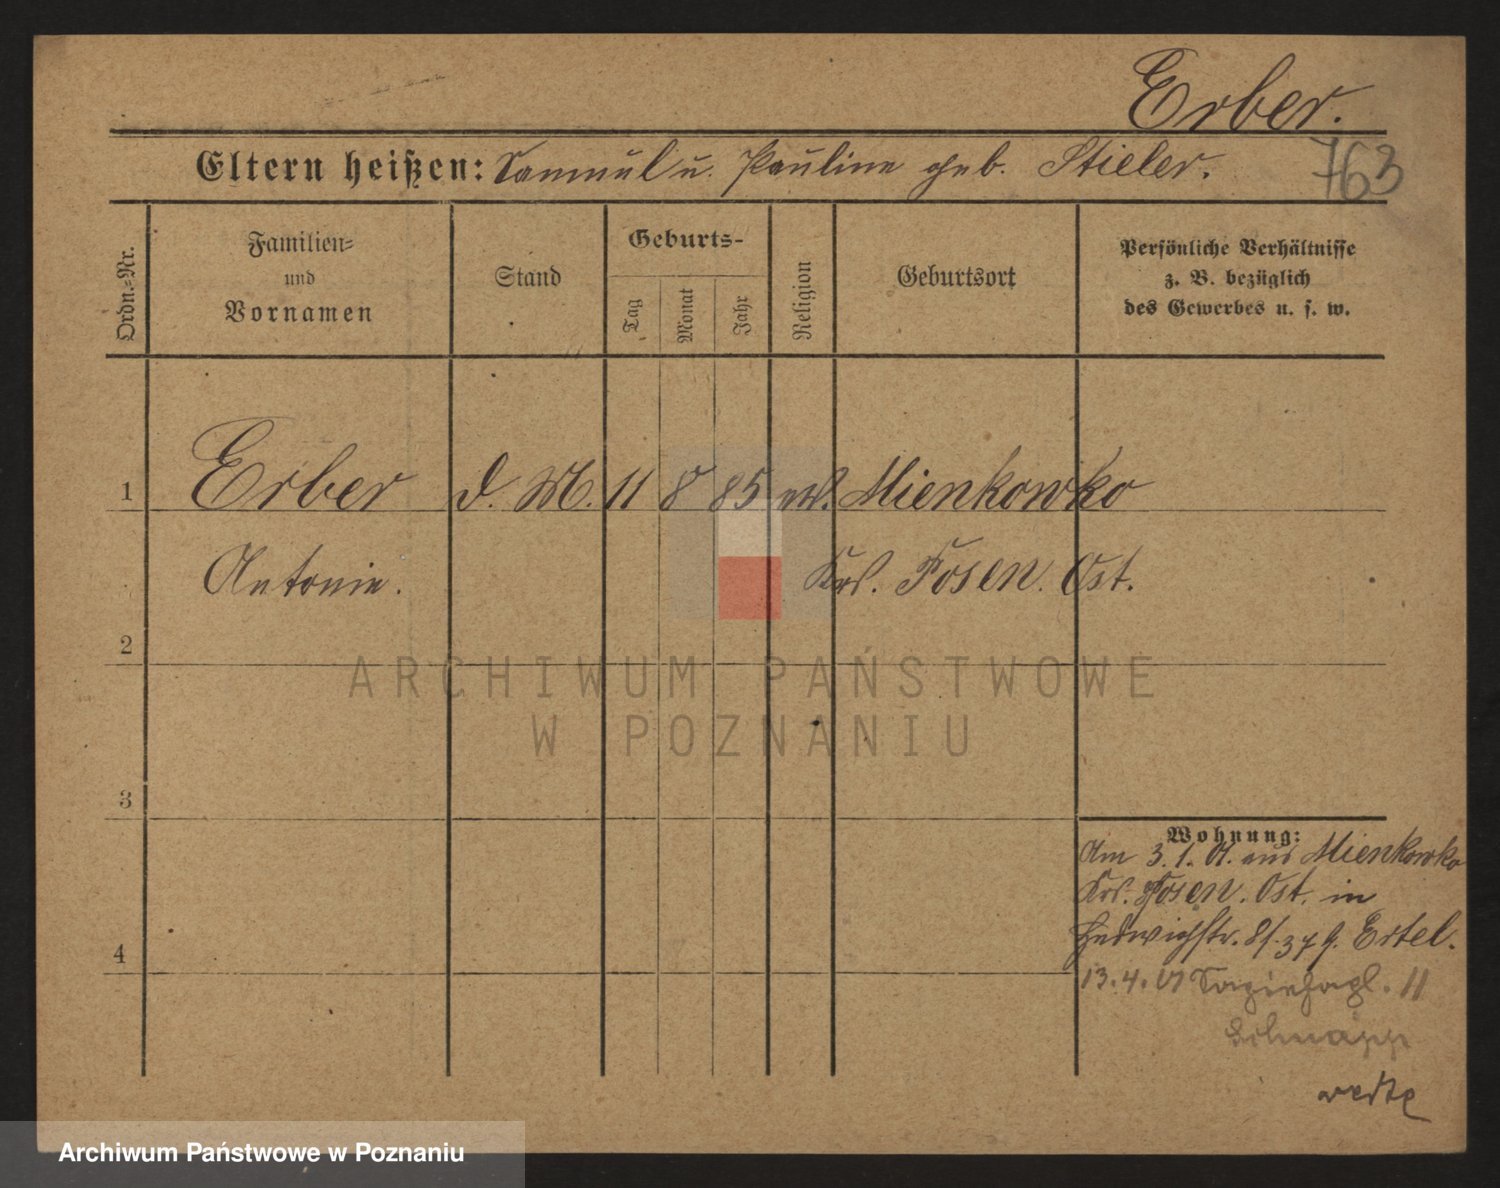 Erber.
Eltern heißen: Samuel u. Pauline geb. Stieler.
763
Ordn.-Nr.
Familien-
und
Vornamen
Stand
Geburts-
Tag
Monat
Jahr
Religion
Geburtsort
Persönliche Verhältnisse
z. B. bezüglich
des Gewerbes u. s. w.
1 Erber d. M. 11 8 85 ev. Mienkowko
Antonie. Krs. Posen. Ost.
2
ARCHIWUM PAŃSTWOWE
W POZNANIU
3
Wohnung:
Am 3. 1. 01. aus Mienkowko
Krs. Posen. Ost. in
Hedwigstr. 8/. Ertel.
4
13. 4. 11
Archiwum Państwowe w Poznaniu